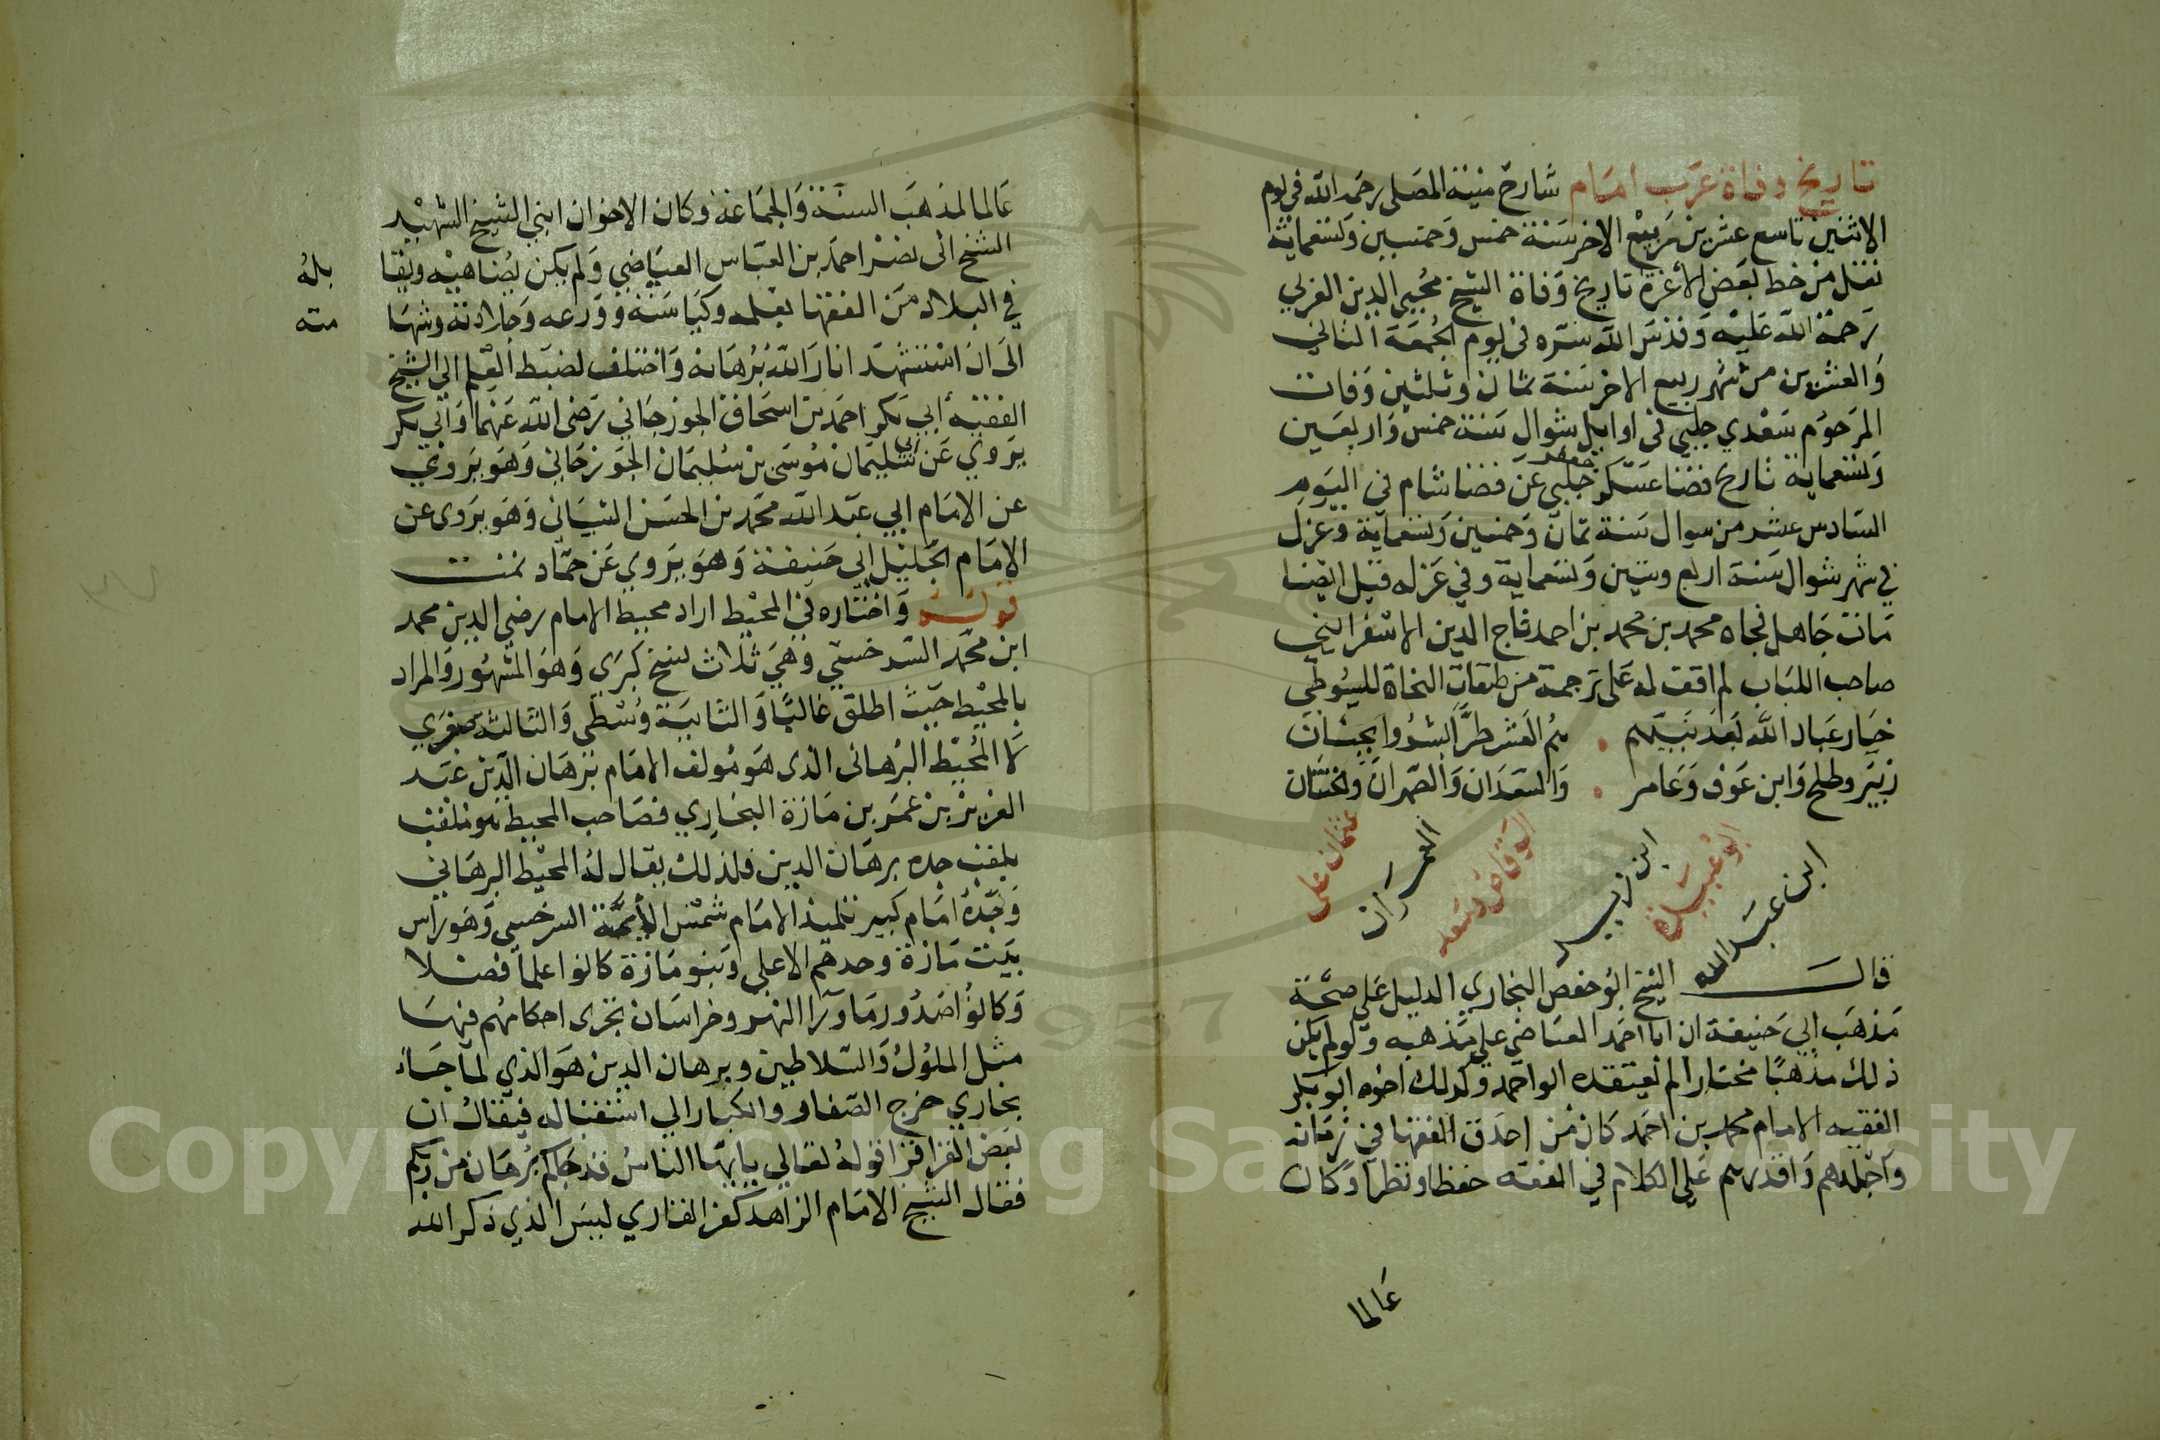 تاريخ وفاة عرب امام شارح منية المصلي رحمه الله في يوم
الاثنين تاسع عشرين ربيع الاخر سنة خمس وخمسين وتسعمائة
نقل من خط بعض الأعزة تاريخ وفاة الشيخ محيي الدين العربي
رحمة الله عليه وقدس الله سره في يوم الجمعة الثاني
والعشرين من شهر ربيع الاخر سنة ثمان وثلثين وفات
المرحوم سعدي جلبي في اوايل شوال سنة خمس واربعين
وتسعماية تاريخ قضا عسكر جلبي عن قضا شام في اليوم
السادس عشر من شوال سنة ثمان وخمسين وتسعماية وعزل
في شهر شوال سنة اربع وستين وتسعماية وفي عزله قيل ايضا
مات جاهل فجاه محمد بن محمد بن احمد تاج الدين الاسفرايني
صاحب اللباب لم اقف له على ترجمة من طبقات النحاة للسيوطي
خيار عباد الله بعد نبيهم هم العشر طرا بشروا بجنان
زبير وطلح وابن عوف وعامر والسعدان والصهران والختنان
ابن عبد الله
ابو عبيدة
ابن زبير
ابو وقاص وسعد
العمران
عثمان علي
قال الشيخ ابو حفص البخاري الدليل على صحة
مذهب ابي حنيفة ان ابا احمد العياضي على مذهبه ولو لم يكن
ذلك مذهبا مختارا لم يعتقده الواحد وكذلك اخوه ابو بكر
الفقيه الامام محمد بن احمد كان من احدق الفقها في زمانه
واجلهم واقدرهم على الكلام في الفقه حفظا ونظرا وكان
عالما
عالما لمذهب السنة والجماعة وكان الاخوان ابني الشيخ الشهيد
الشيخ ابي نصر احمد بن العباس العياضي ولم يكن يضاهيه ويقا
بله
في البلاد من الفقها بعلمه وكياسته وورعه وجلادته وشها
مته
الى ان استشهد انار الله برهانه واختلف لضبط العلم الي الشيخ
الفقيه أبي بكر احمد بن اسحاق الجوزجاني رضى الله عنهما وابي بكر
يروي عن ابي سليمان موسى بن سليمان الجوزجاني وهو يروي
عن الامام ابي عبد الله محمد بن الحسن الشيباني وهو يروى عن
الامام الجليل ابي حنيفة وهو يروي عن حماد تمت
قوله واختاره في المحيط اراد محيط الامام رضي الدين محمد
ابن محمد السرخسي وهي ثلاث نسخ كبرى وهو المشهور والمراد
بالمحيط حيث اطلق غالبا والثانية وسطى والثالثة صغرى
لا المحيط البرهاني الذى هو مؤلف الامام برهان الدين عبد
العزيز بن عمر بن مازة البخاري فصاحب المحيط هو تلقب
بلقب جده برهان الدين فلذلك يقال له المحيط البرهاني
وجده امام كبير تلميذ الامام شمس الأيمة السرخسي وهو راس
بيت مازة وحدهم الاعلى وبنو مازة كانوا علما فضلا
وكانوا صدور ما ورا النهر وخراسان تجرى احكامهم فيها
مثل الملوك والسلاطين وبرهان الدين هو الذي لما جاء
بخاري خرج الصغار والكبار الي استقباله فيقال ان
بعض القرا قرا قوله تعالي يا ايها الناس قد جاكم برهان من ربكم
فقال الشيخ الامام الزاهد القاري ليس الذي ذكر الله
Copyright © King Saud University
1957